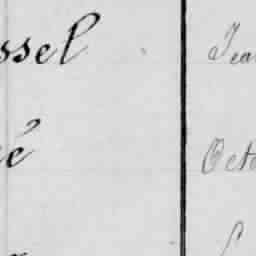 ssel Jea
é Octo